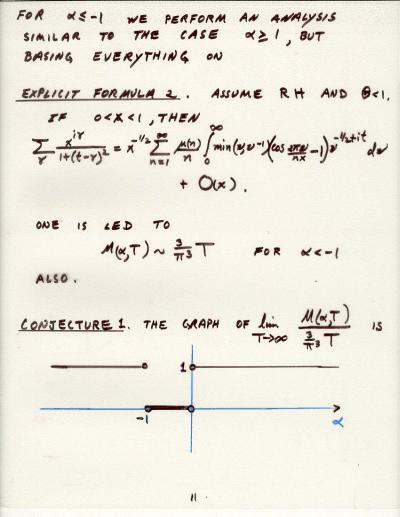 FOR α≤-1 WE PERFORM AN ANALYSIS
SIMILAR TO THE CASE α≥1, BUT
BASING EVERYTHING ON
EXPLICIT FORMULA 2. ASSUME RH AND Θ<1.
IF 0<X<1, THEN
∑_γ x^{iγ}/(1+(t-γ)²) = x^{-1/2} ∑_{n=1}^{∞} μ(n)/n ∫_0^∞ min(v,v^{-1})(cos(2πv/nx)-1)v^{-1/2+it} dv
+ O(x).
ONE IS LED TO
M(α,T) ~ 3/π³ T FOR α<-1
ALSO.
CONJECTURE 1. THE GRAPH OF lim_{T→∞} M(α,T)/(3/π³ T) IS
1
-1
α
11